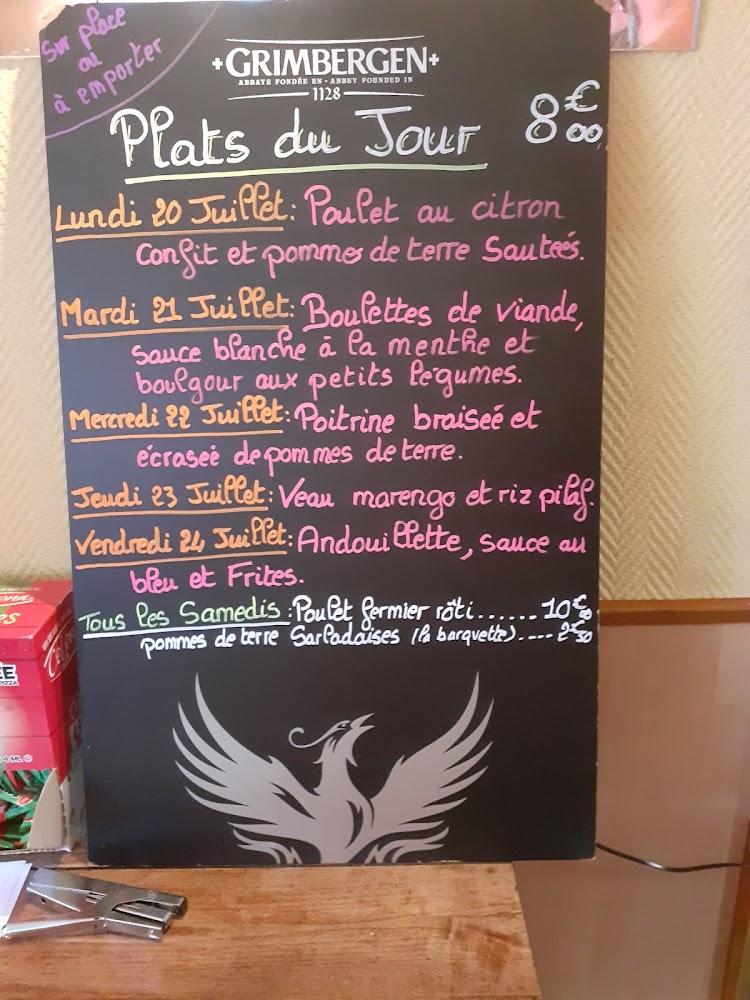 Sur place
ou
à emporter
GRIMBERGEN
ABBAYE FONDÉE EN · ABBEY FOUNDED IN
1128
Plats du Jour 8€00
Lundi 20 Juillet: Poulet au citron
confit et pommes de terre Sauteés.
Mardi 21 Juillet: Boulettes de viande,
sauce blanche à la menthe et
boulgour aux petits légumes.
Mercredi 22 Juillet: Poitrine braiseé et
écraseé de pommes de terre.
Jeudi 23 Juillet: Veau marengo et riz pilaf.
Vendredi 24 Juillet: Andouillette, sauce au
bleu et Frites.
Tous les Samedis: Poulet fermier rôti...... 10€00
pommes de terre Sarladaises (la barquette).... 2€50